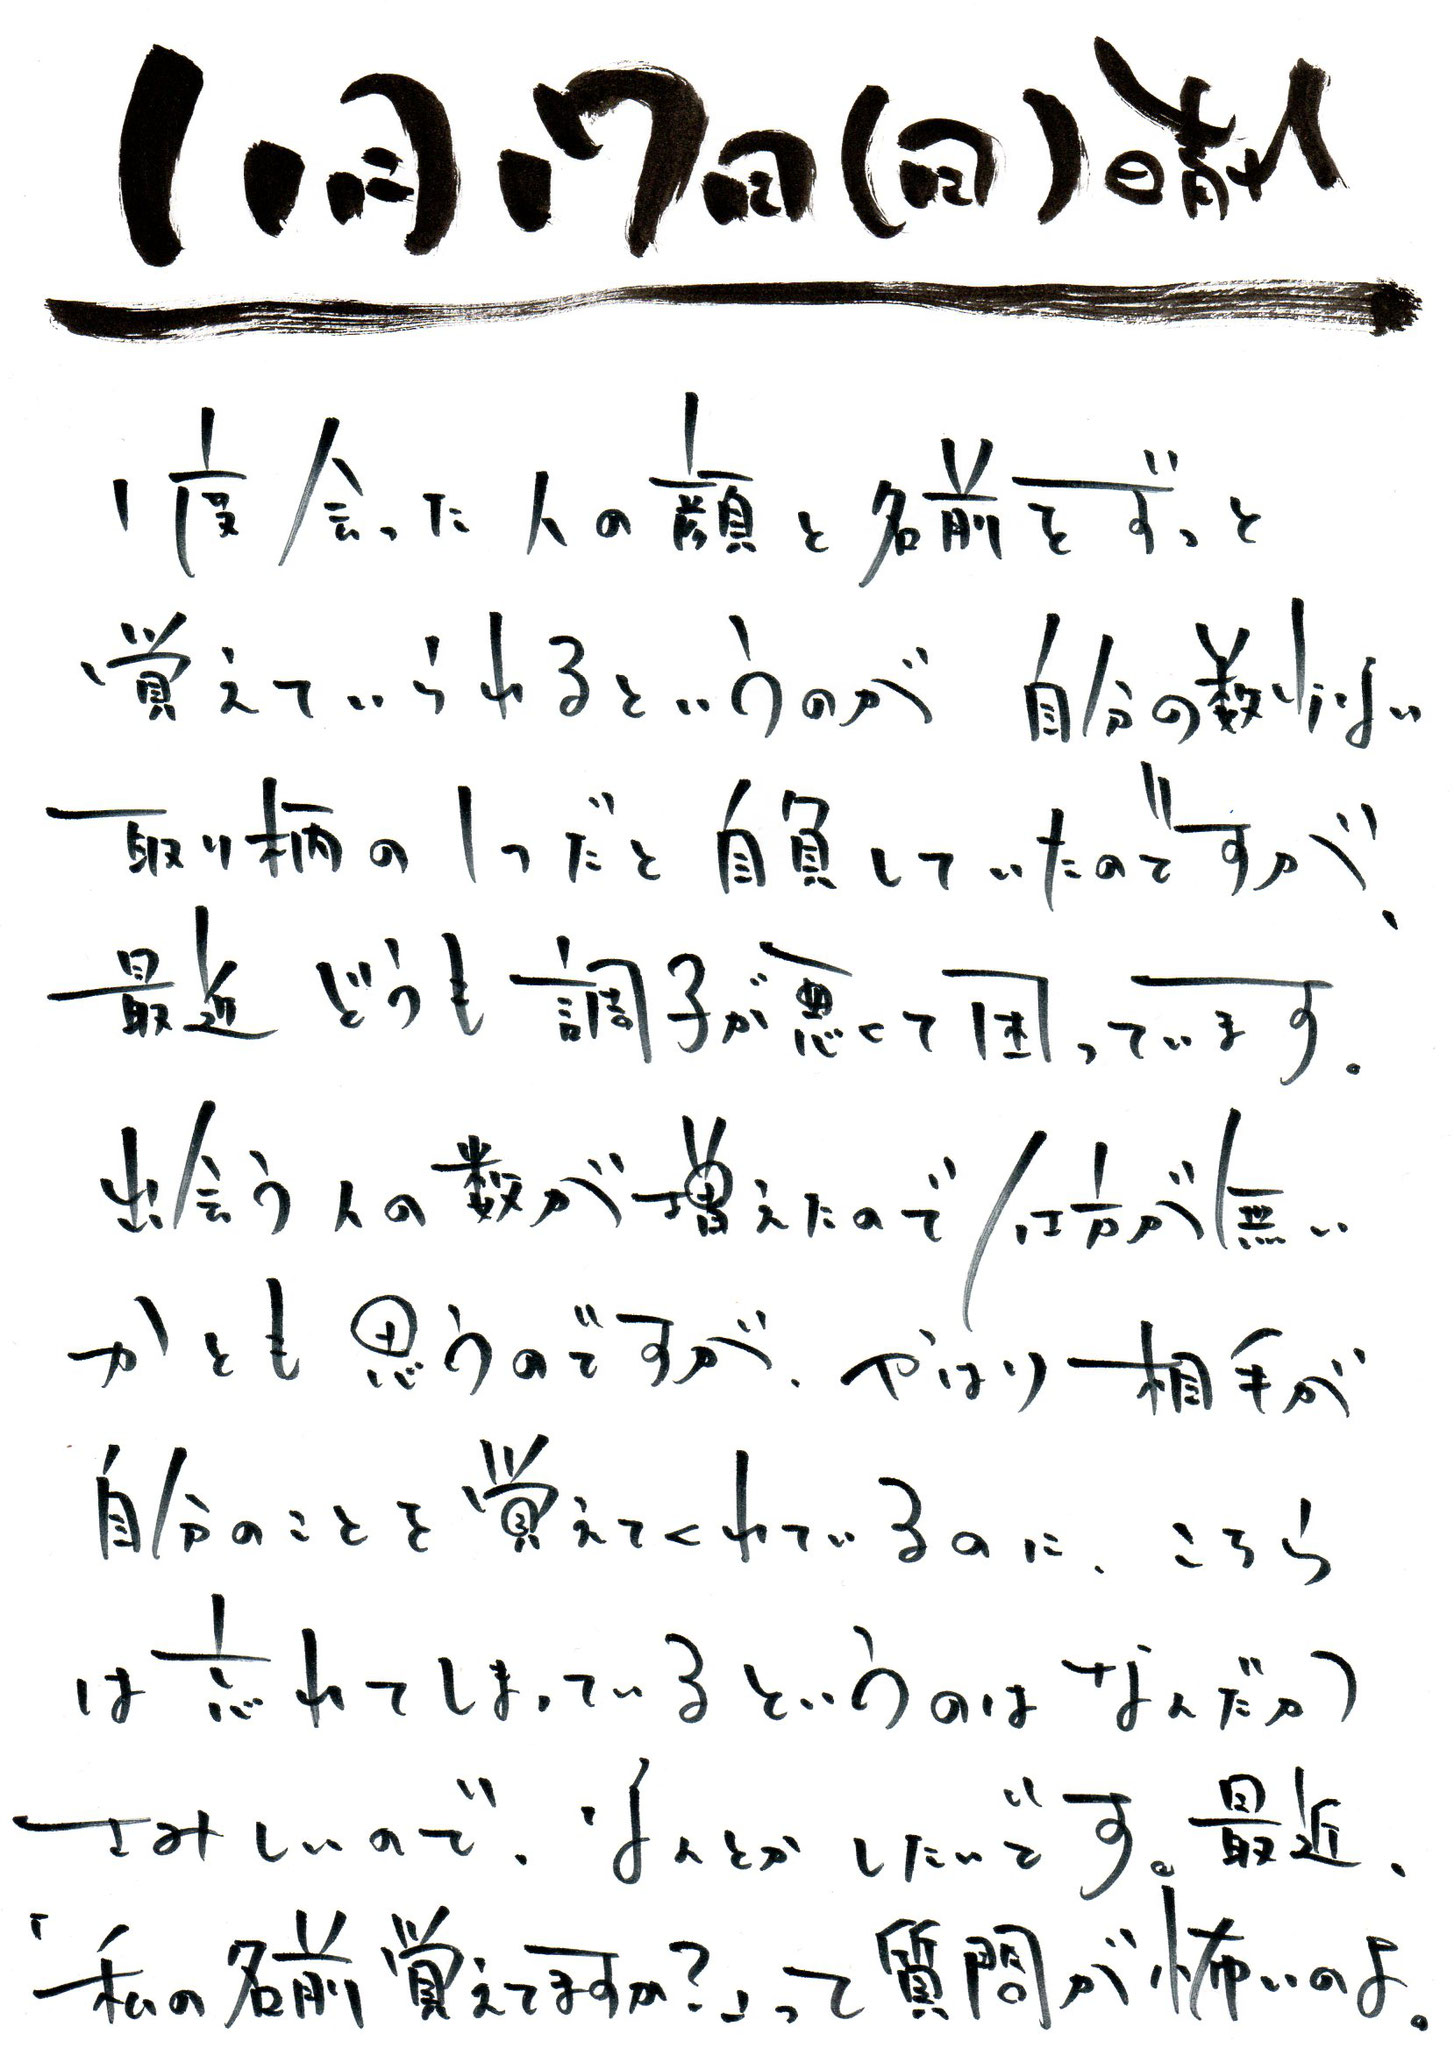 1月17日(日)晴れ
1度会った人の顔と名前をずっと
覚えていられるというのが 自分の数少ない
取り柄の1つだと自負していたのですが、
最近どうも調子が悪くて困っています。
出会う人の数が増えたので仕方が無い
かとも思うのですが、やはり相手が
自分のことを覚えてくれているのに、こちら
は忘れてしまっているというのはなんだか
さみしいので、なんとかしたいです。最近、
「私の名前覚えてますか?」って質問が怖いのよ。